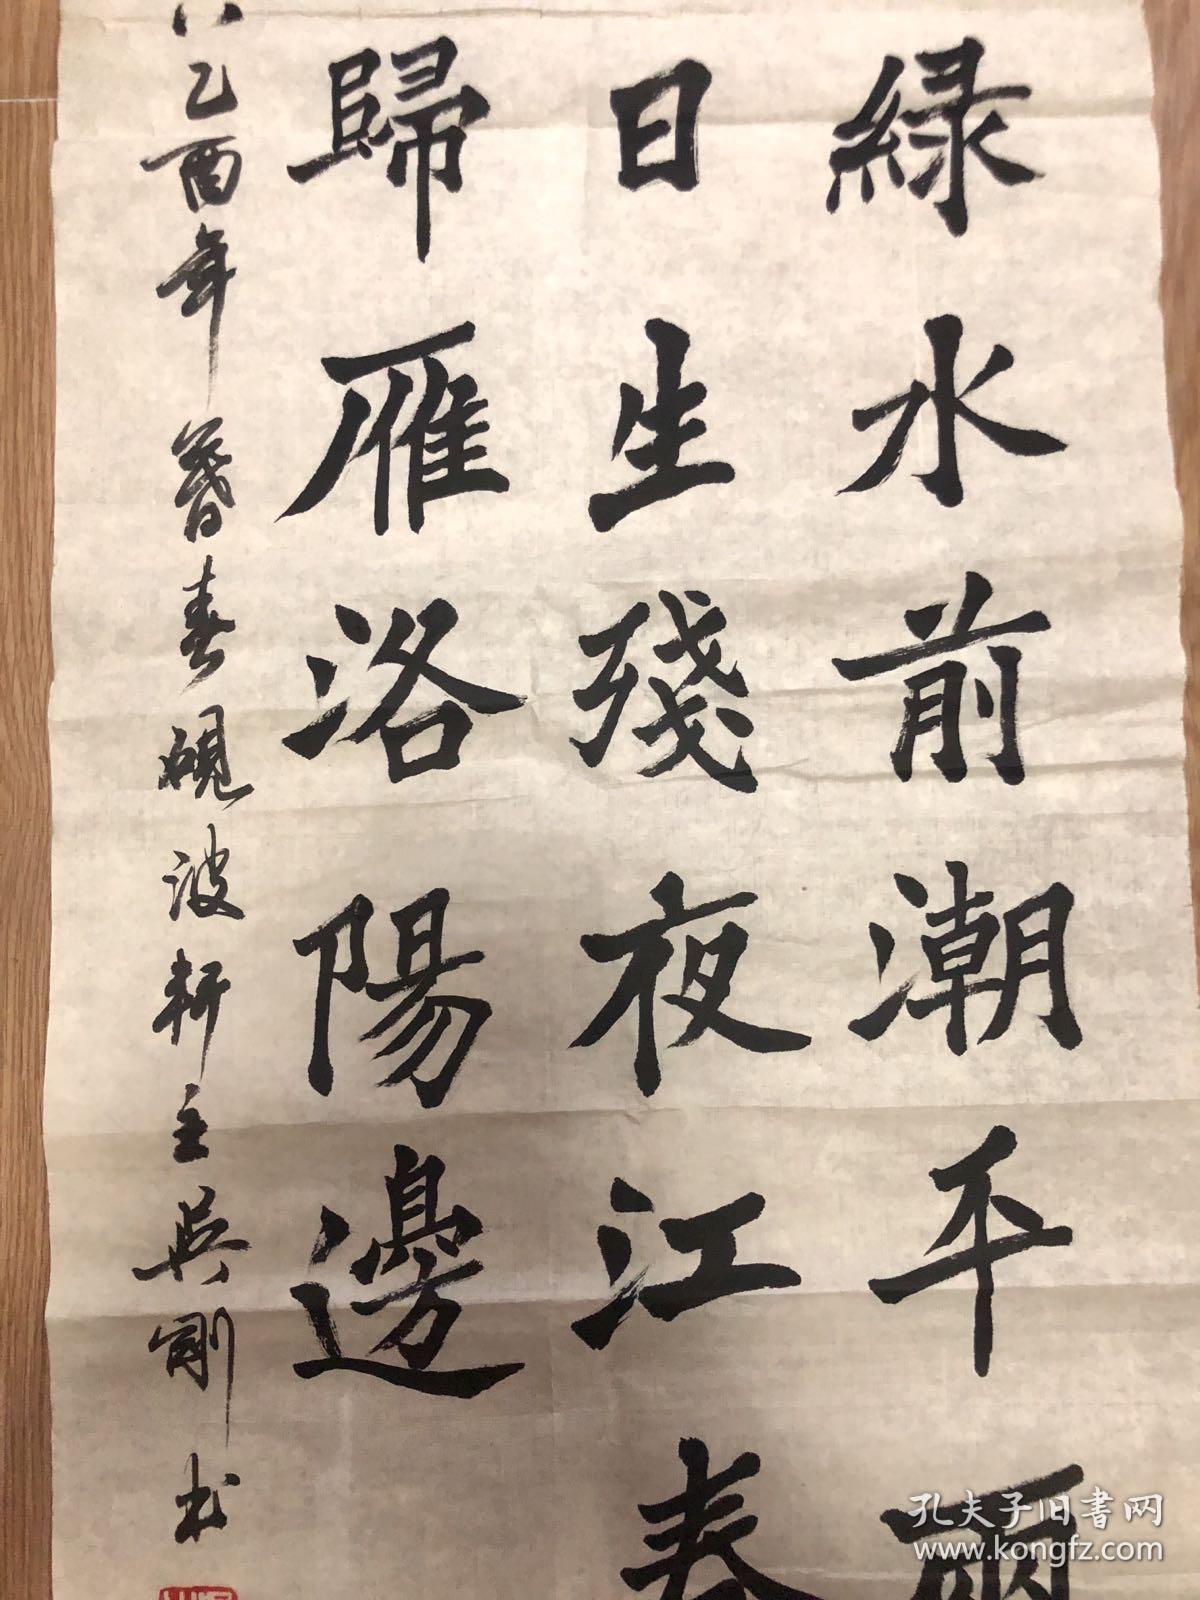 緑水前潮平两
日生残夜江春
歸雁洛陽邊
乙酉年暮春硯波軒主吳剛书
孔夫子旧书网
www.kongfz.com